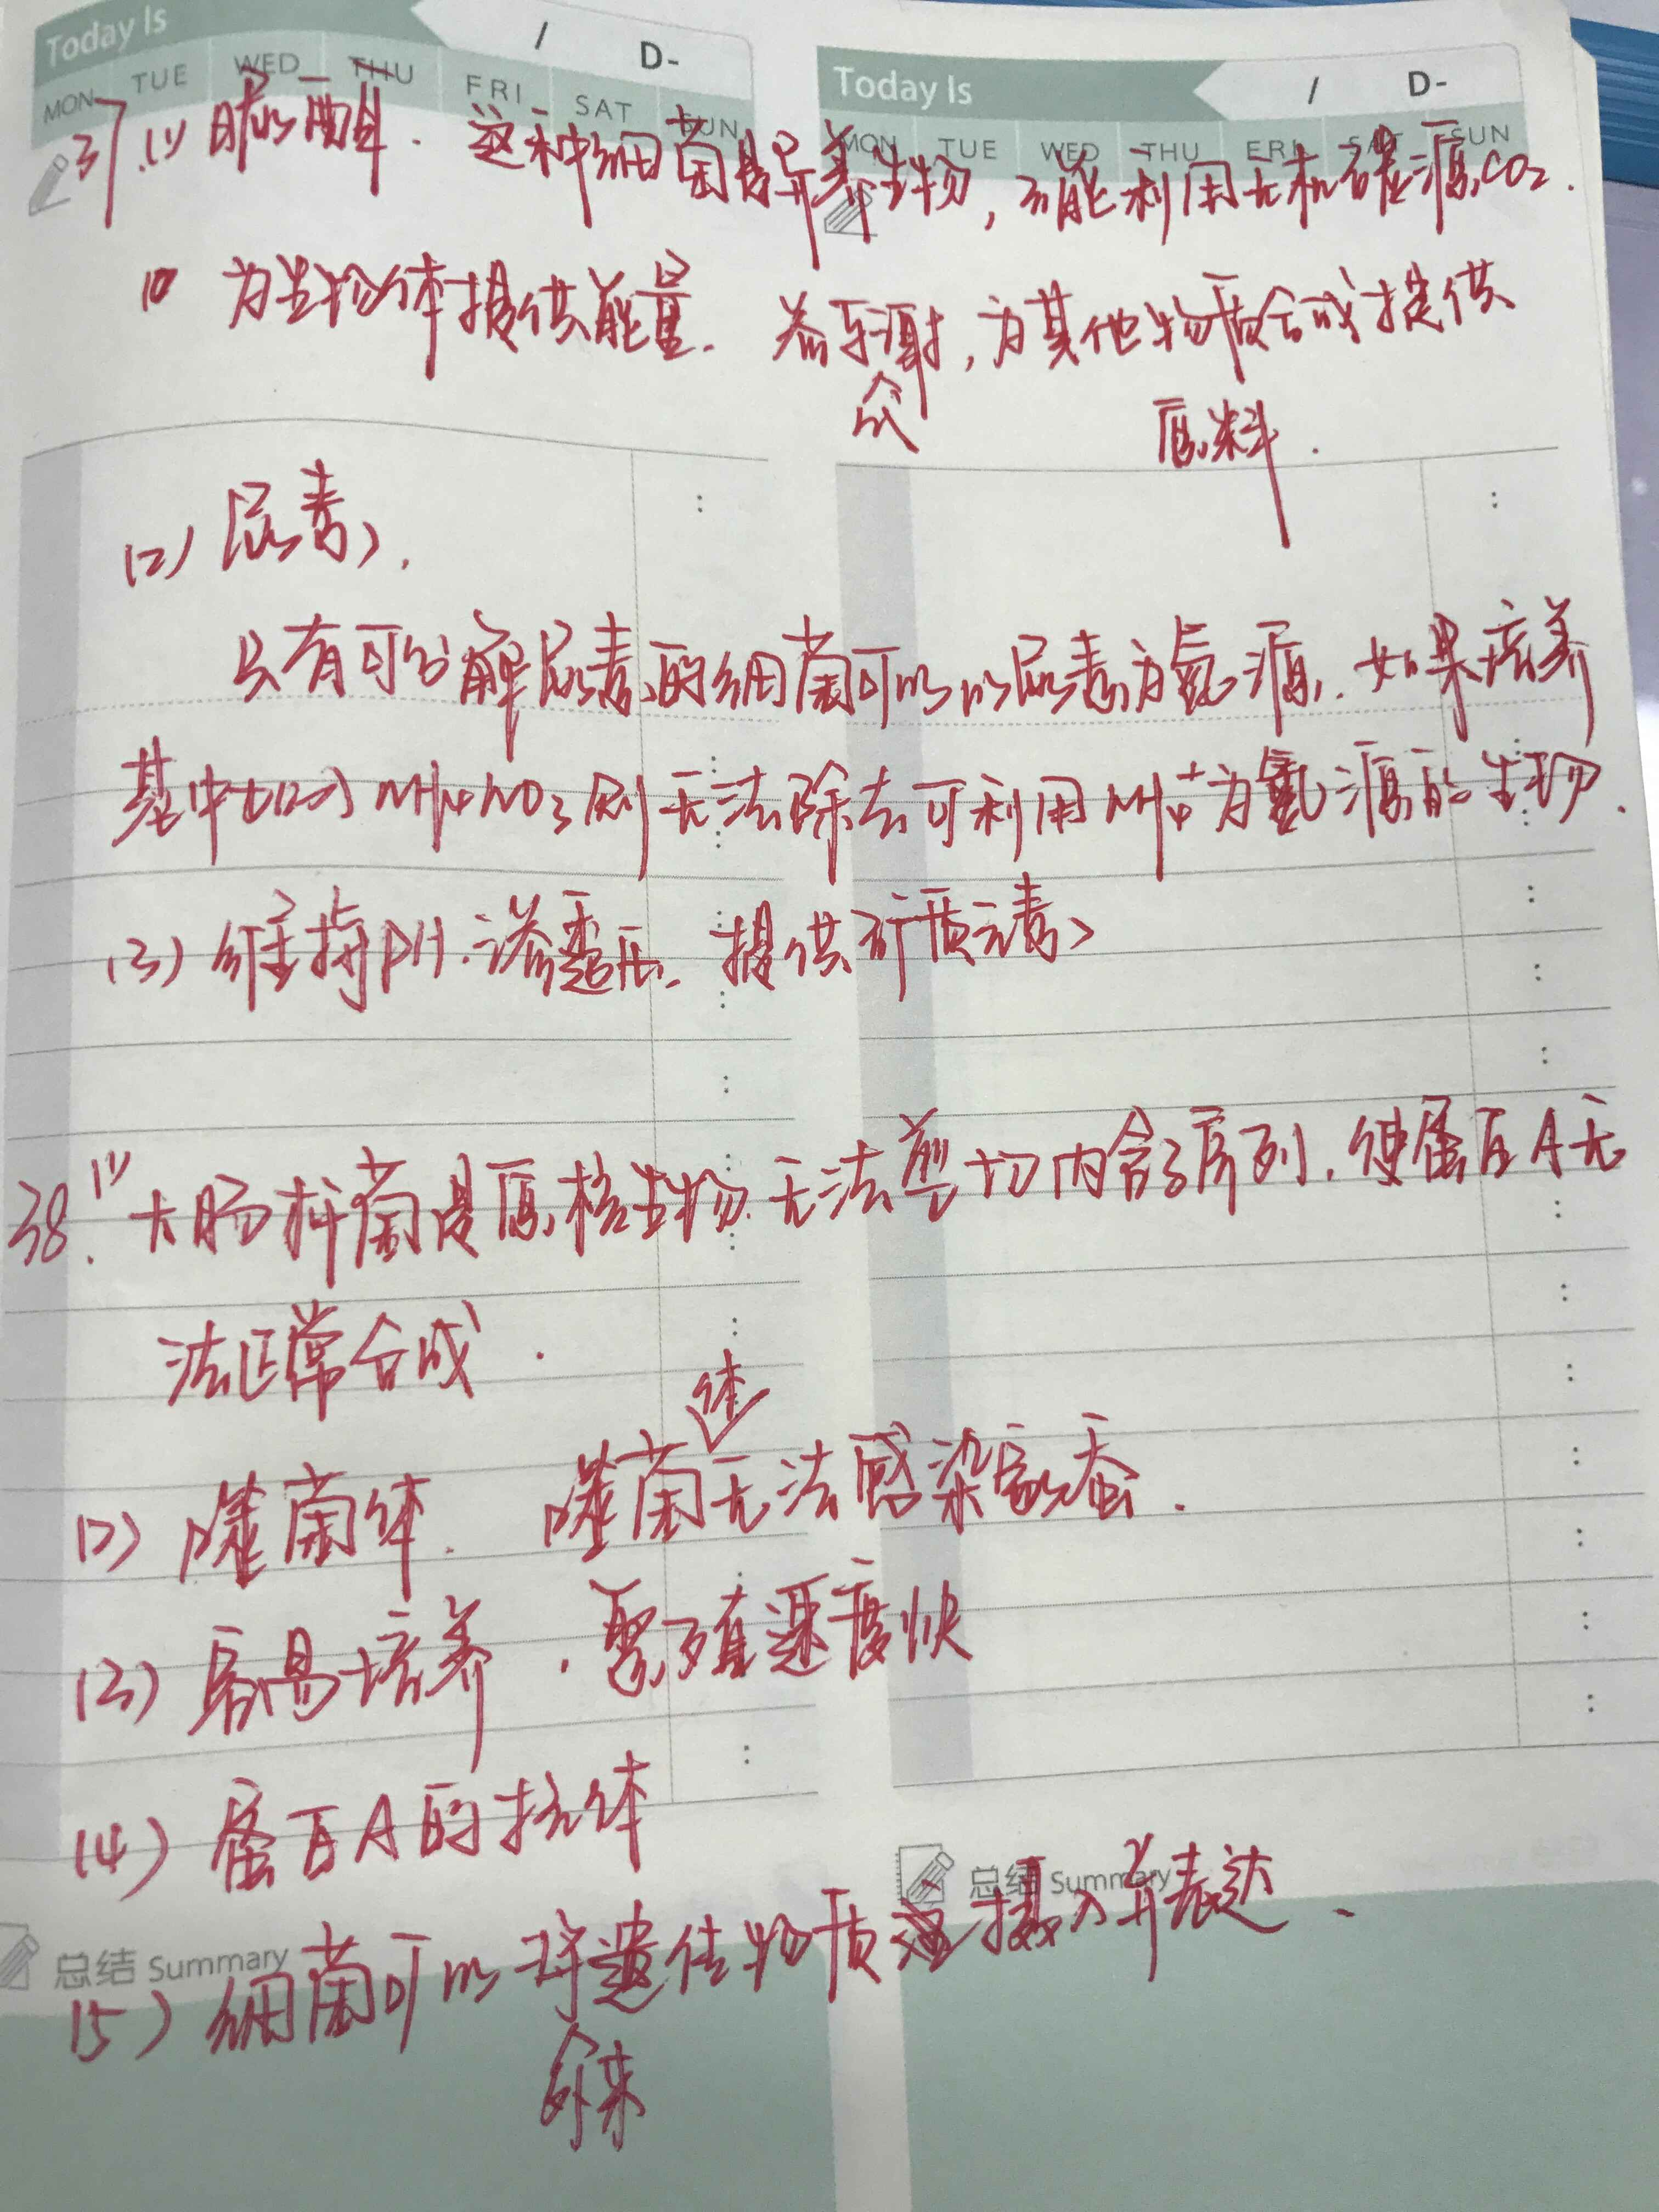 Today Is / D-
MON TUE WED THU FRI SAT SUN
Today Is / D-
MON TUE WED THU FRI SAT SUN
37.(1) 脲酶. 这种细菌是异养生物,不能利用无机碳源CO₂.
为生物体提供能量. 参与代谢,为其他物质合成提供
原料.
(2) 尿素,
只有可分解尿素的细菌可以以尿素为氮源. 如果培养
基中加入NH₄NO₃则无法除去可利用NH₄⁺为氮源的生物.
(3) 维持pH.渗透压. 提供矿质元素
38.(1) 大肠杆菌是原核生物.无法剪切内含子序列,使蛋白A无
法正常合成.
(2) 噬菌体. 噬菌体无法感染家蚕.
(3) 容易培养.繁殖速度快
(4) 蛋白A的抗体
总结 Summary
总结 Summary
(5) 细菌可以将外来遗传物质摄入并表达.